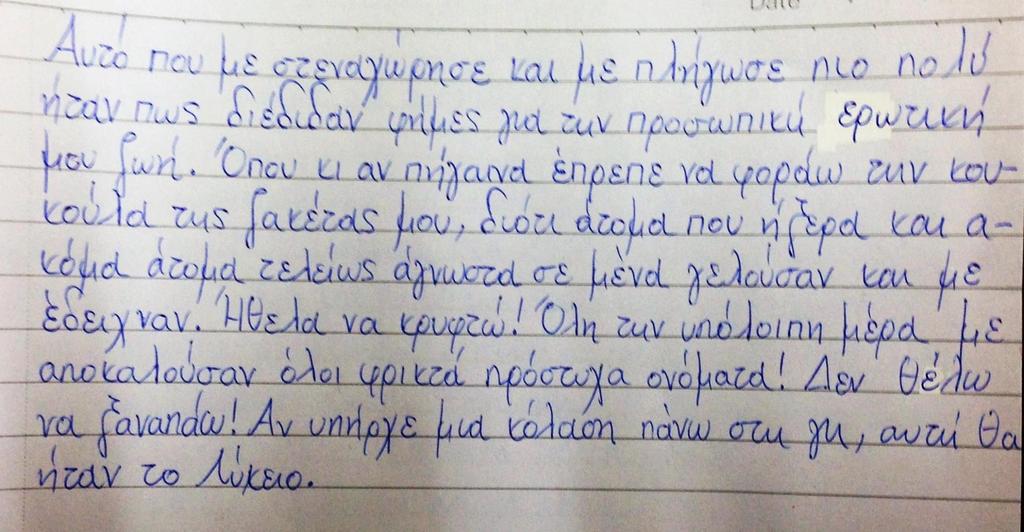 Date
Αυτό που με στεναχώρησε και με πλήγωσε πιο πολύ
ήταν πως διέδιδαν φήμες για την προσωπική ερωτική
μου ζωή. Όπου κι αν πήγαινα έπρεπε να φοράω την κου-
κούλα της ζακέτας μου, διότι άτομα που ήξερα και α-
κόμα άτομα τελείως άγνωστα σε μένα γελούσαν και με
έδειχναν. Ήθελα να κρυφτώ! Όλη την υπόλοιπη μέρα με
αποκαλούσαν όλοι φρικτά πρόστυχα ονόματα! Δεν θέλω
να ξαναπάω! Αν υπήρχε μια κόλαση πάνω στη γη, αυτή θα
ήταν το λύκειο.